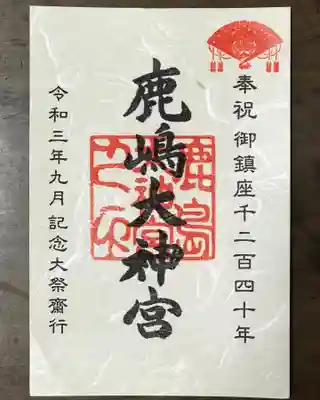 奉祝御鎮座千二百四十年
鹿嶋大神宮
令和三年九月記念大祭齋行